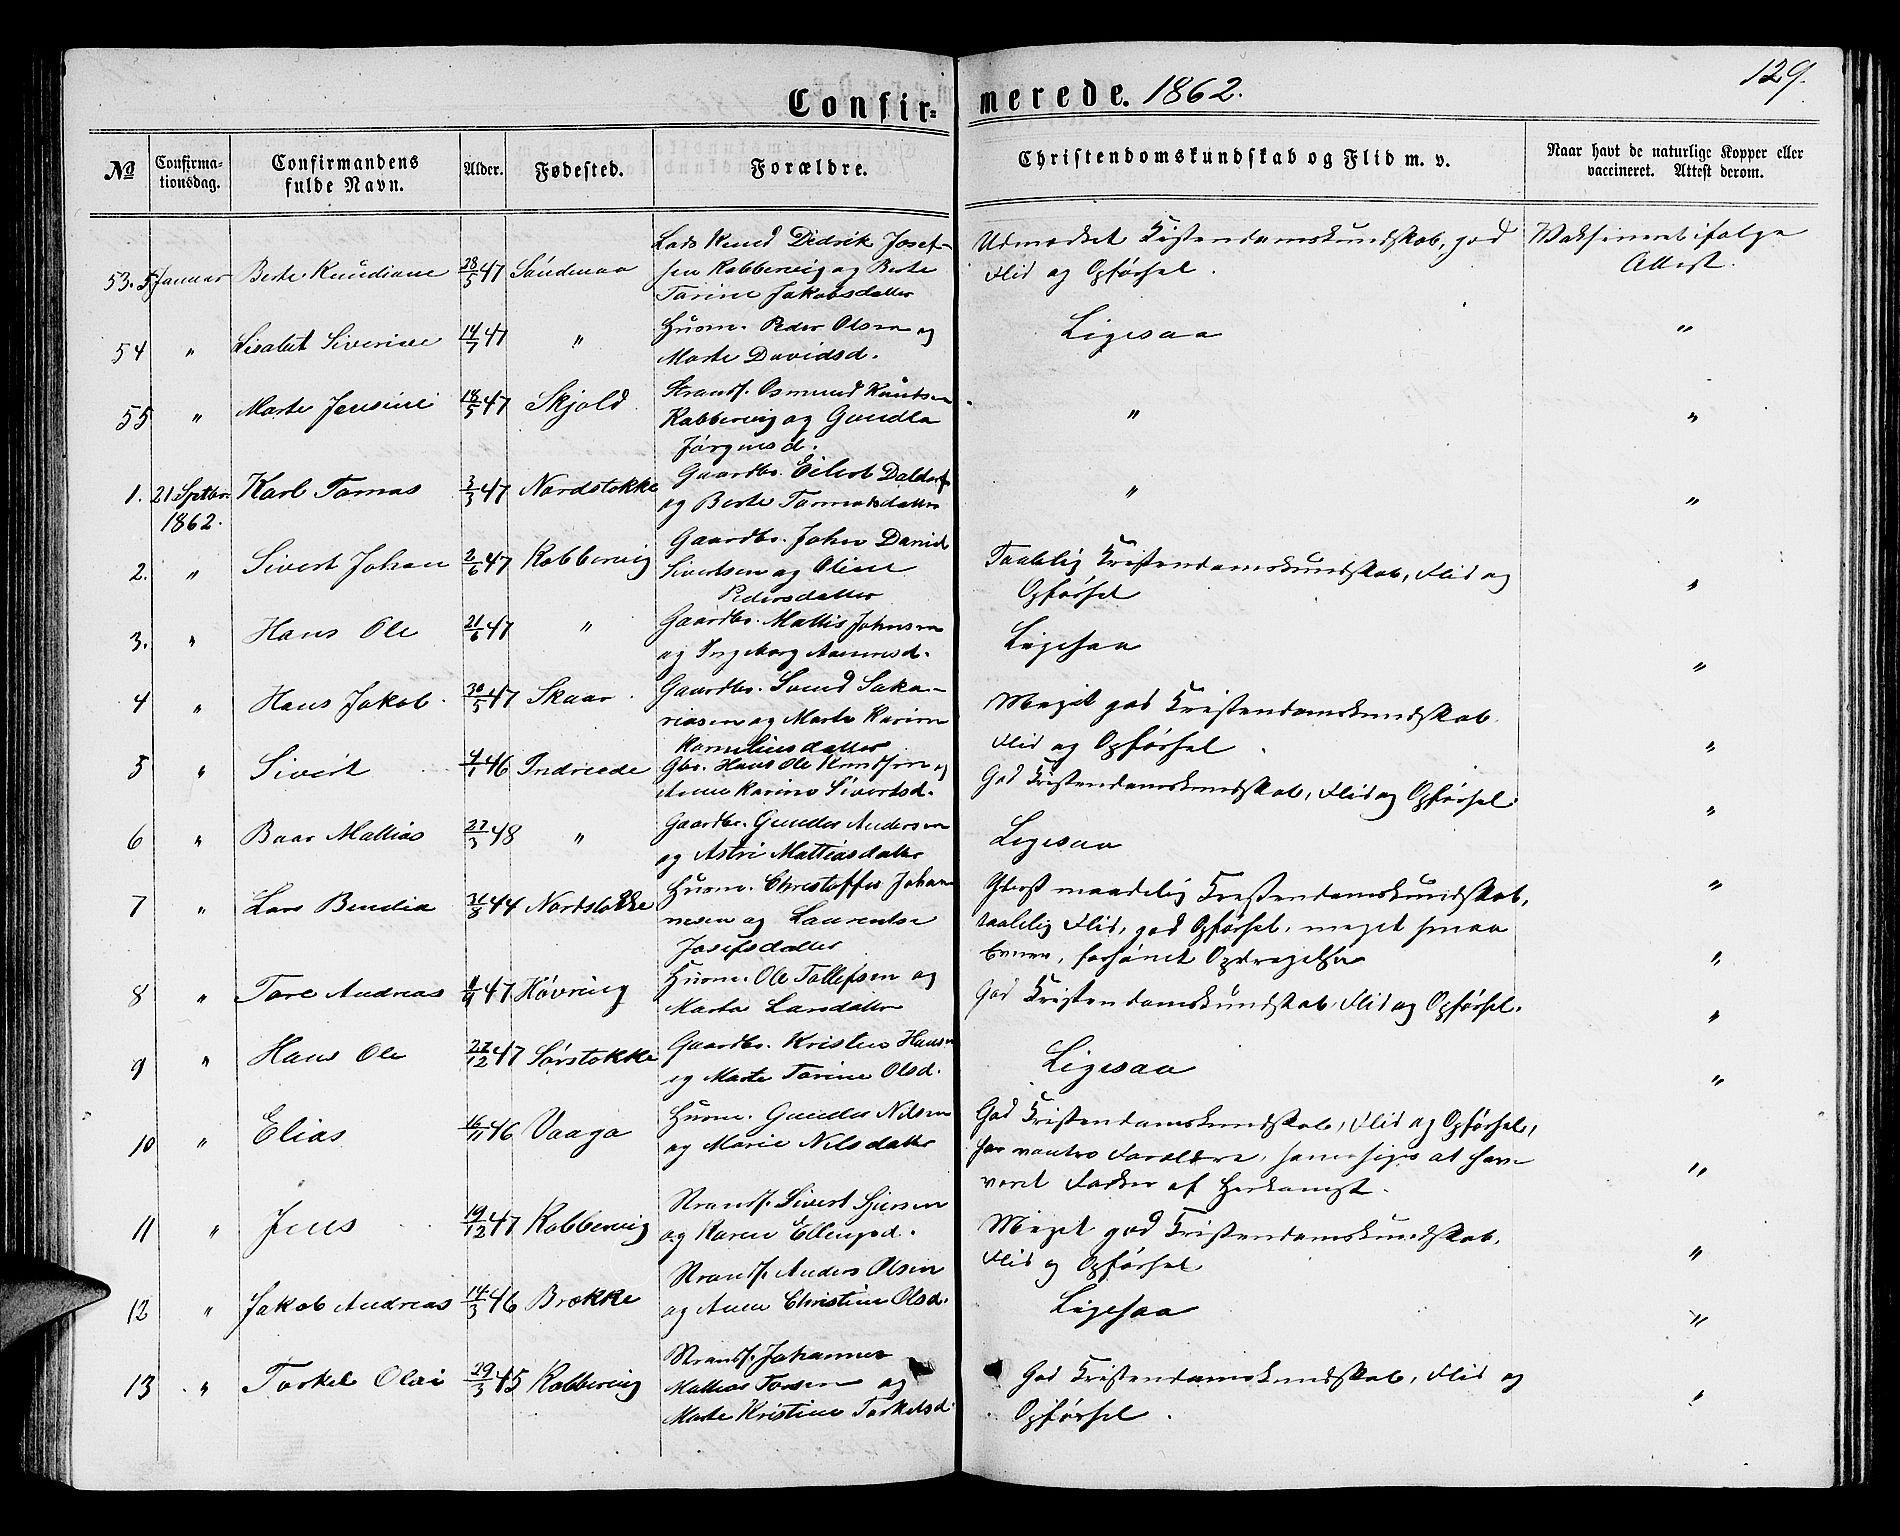 129.
Confirmerede. 1862.
No Confirmationsdag. Confirmandens fulde Navn. Alder. Fødested. Forældre. Christendomskundskab og Flid m. v. Naar havt de naturlige Kopper eller vaccineret. Attest derom.
53. 5 Januar Berte Knudiane 28/5 47 Lods Knud Didrik Josef- Udmærket Kristendomskundskab, god Waksineret ifølge
sen Kobbervig og Berte Flid og Opførsel. Attest.
Tarine Jakobsdatter
54 " Lisabet Siverine 14/7 47 " Husm. Peder Olsen og Ligesaa "
Marte Davidsd.
55 " Marte Jensine 18/5 47 Skjold Strands. Osmund Knutsen " "
Kobbervig og Gundla
Jørgensd.
1. 21 Septbr. Karl Tomas 3/3 47 Nordstokke Gaardbr. Eilert " "
1862. og Berte
2. " Sivert Johan 2/6 47 Kobbervig Gaardbr. John Daniel Taalelig Kristendomskundskab, Flid og "
Sivertsen og Oline Opførsel
Pedersdatter
3. " Hans Ole 21/6 47 " Gaardbr. Mattis Johnsen Ligesaa "
og Ingeborg
4 " Hans Jakob. 30/5 47 Skaar Gaardbr. Svend Saka- Meget god Kristendomskundskab "
riasen og Marte Karine Flid og Opførsel.
Korneliusdatter
5 " Sivert 46 Indreede Gbr. Hans Ole Knudsen og God Kristendomskundskab, Flid og Opførsel "
Anne Karine Sivertsd.
6 " Baar Mattias 27/3 48 " Gaardbr. Gunder Andersen Ligesaa "
og Astri Mattiasdatter
7 " Lars Bendix 21/8 44 Nordstokke Husm. Christoffer Johan- Yderst maadelig Kristendomskundskab, "
nesen og Laurentse taalelig Flid, god Opførsel, meget smaa
Josefsdatter Evner, forsømt Opdragelse
8 " Tore Andreas 47 Høvring Husm. Ole Tollefsen og God Kristendomskundskab, Flid og Opførsel. "
Marta Larsdatter
9 " Hans Ole 27/12 47 Sørstokke Gaardbr. Kristen Hansen Ligesaa "
og Marte Tarine Olsd.
10 " Elias 16/11 46 Vaage Husm. Gunder Nilsen God Kristendomskundskab, Flid og Opførsel, "
og Marie Nilsdatter har Forældre, som siges at have
været af Herkomst.
11 " Jens 19/12 47 Kobbervig Strands. Sivert Meget god Kristendomskundskab, "
og Karen Ellingsd. Flid og Opførsel
12 " Jakob Andreas 14/3 46 Brekke Strands. Anders Olsen Ligesaa "
og Anne Christine Olsd.
13 " Torkel Olai 29/3 45 Kobbervig Strands. Johannes God Kristendomskundskab, Flid og "
Mattias Torsen og Opførsel.
Marte Kristine Torkelsd.